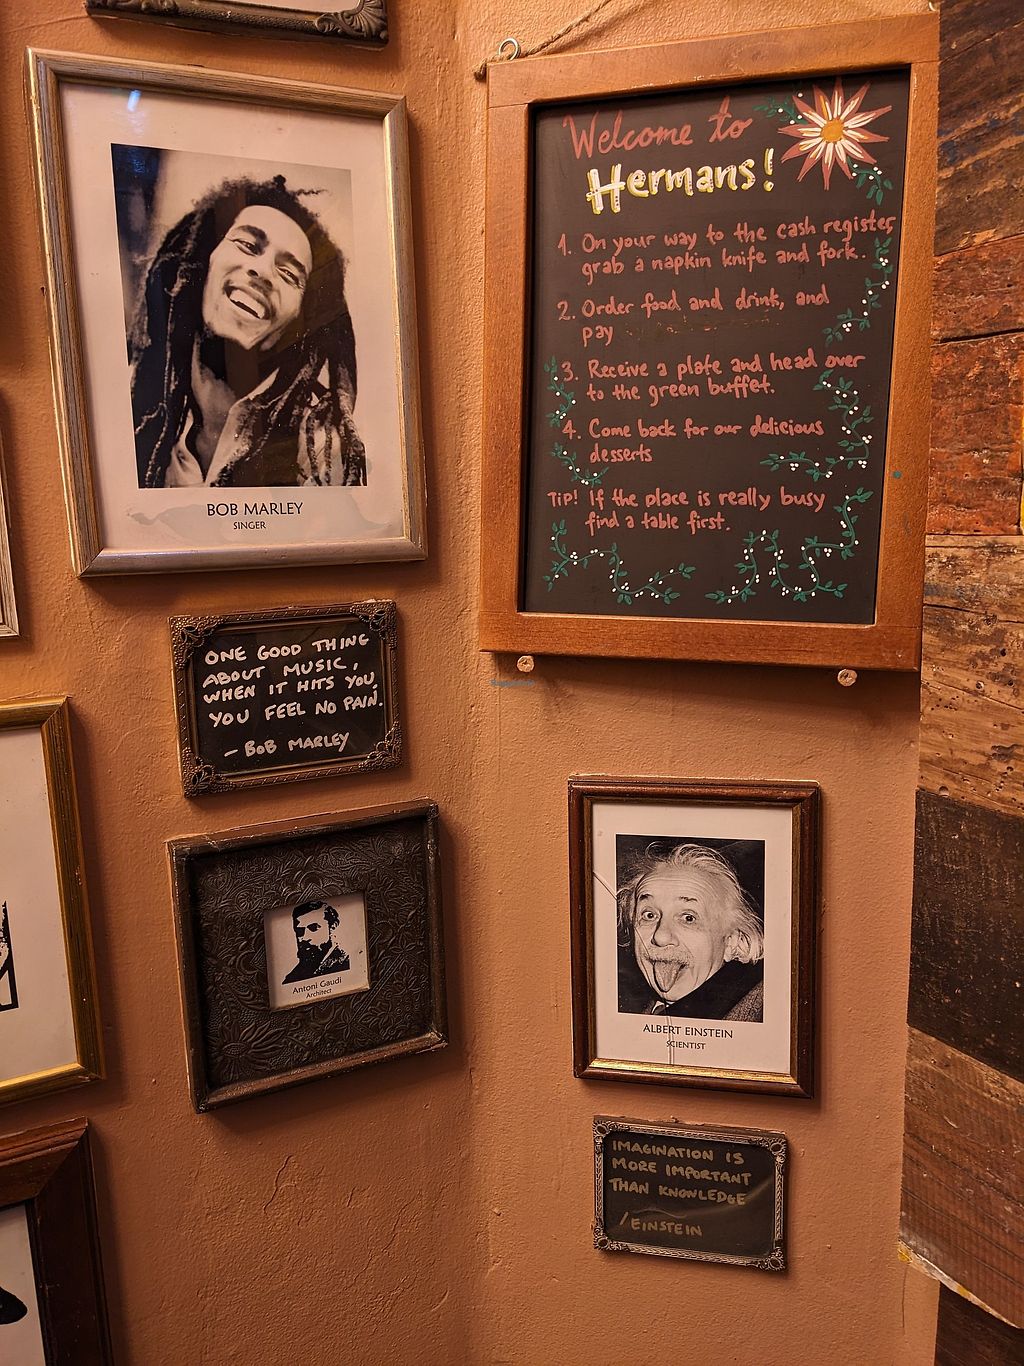 BOB MARLEY
SINGER
ONE GOOD THING
ABOUT MUSIC,
WHEN IT HITS YOU,
YOU FEEL NO PAIN.
- BOB MARLEY
Antoni Gaudi
Architect
Welcome to
Hermans!
1. On your way to the cash register,
grab a napkin knife and fork.
2. Order food and drink, and
pay
3. Receive a plate and head over
to the green buffet.
4. Come back for our delicious
desserts
TIP! If the place is really busy
find a table first.
ALBERT EINSTEIN
SCIENTIST
IMAGINATION IS
MORE IMPORTANT
THAN KNOWLEDGE
/EINSTEIN